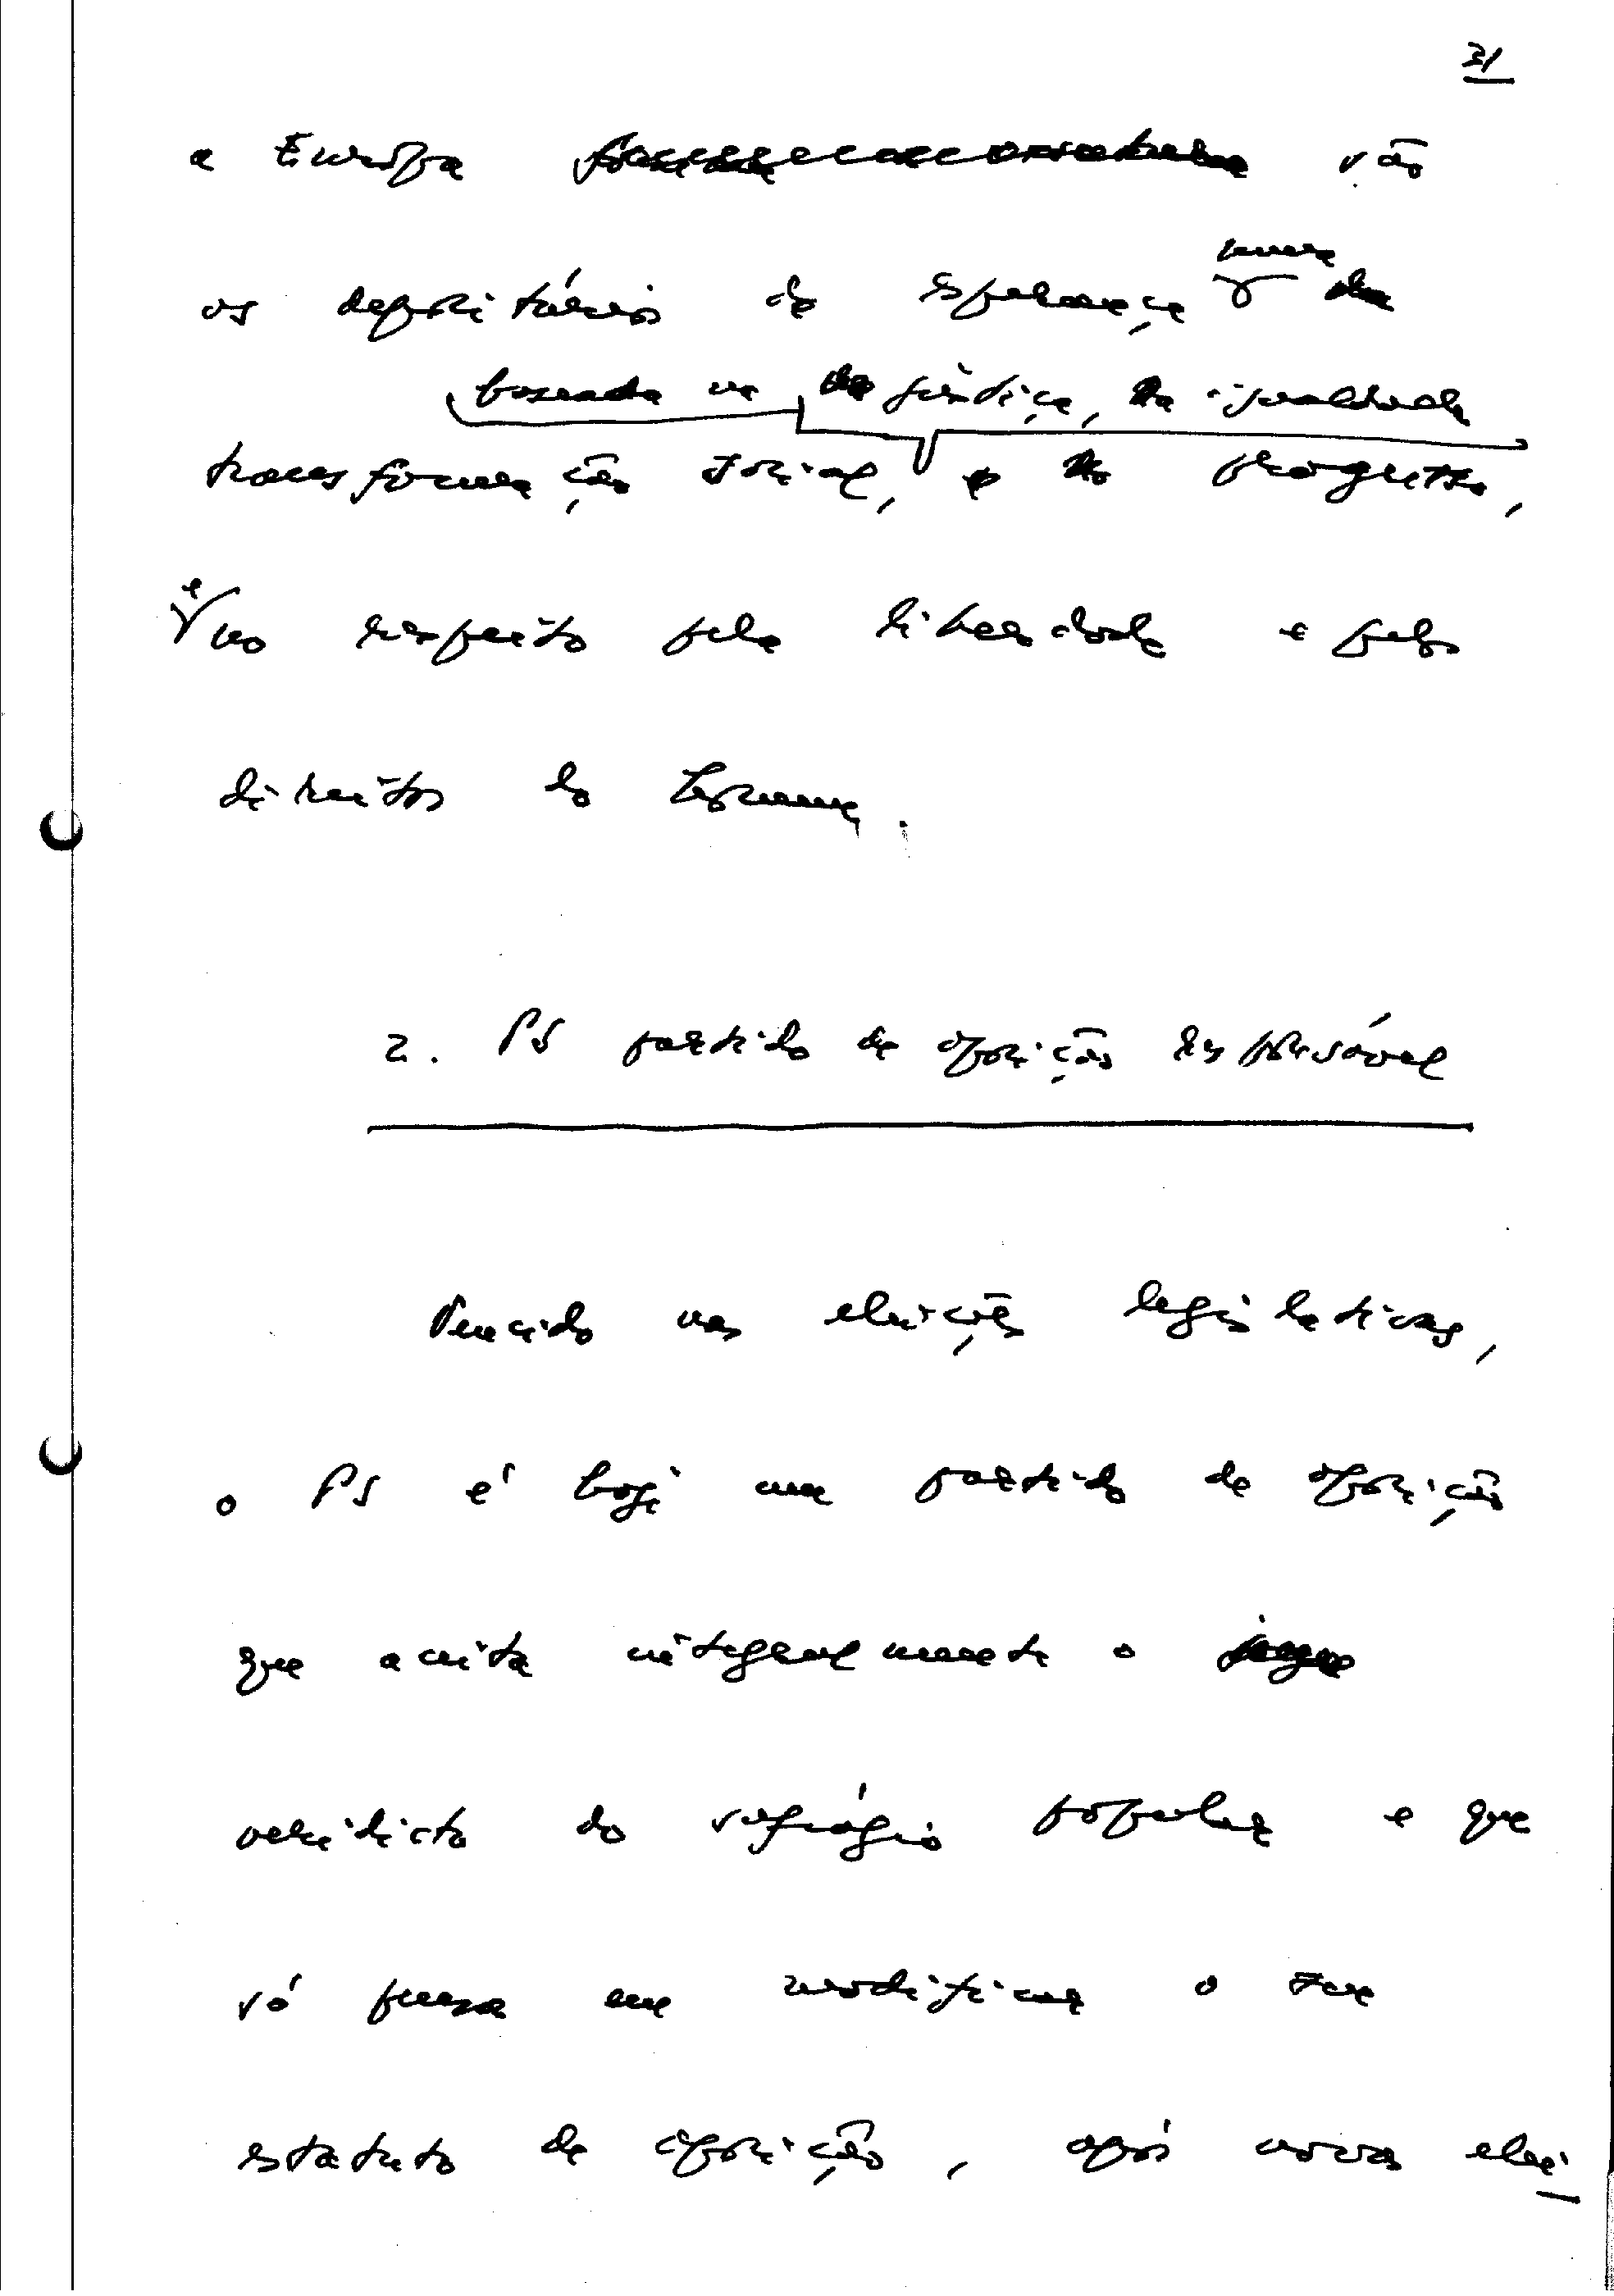 31
a Europa são
os depositários da esperança numa
baseada na justiça, na igualdade
transformação social, e no progresso,
e no respeito pela liberdade e pelos
direitos do homem.
2. PS partido de oposição responsável
Vencido nas eleições legislativas,
o PS é hoje um partido de oposição
que aceita integralmente o
veridicto do sufrágio popular e que
só pensa em modificar o seu
estatuto de oposição, após novas elei